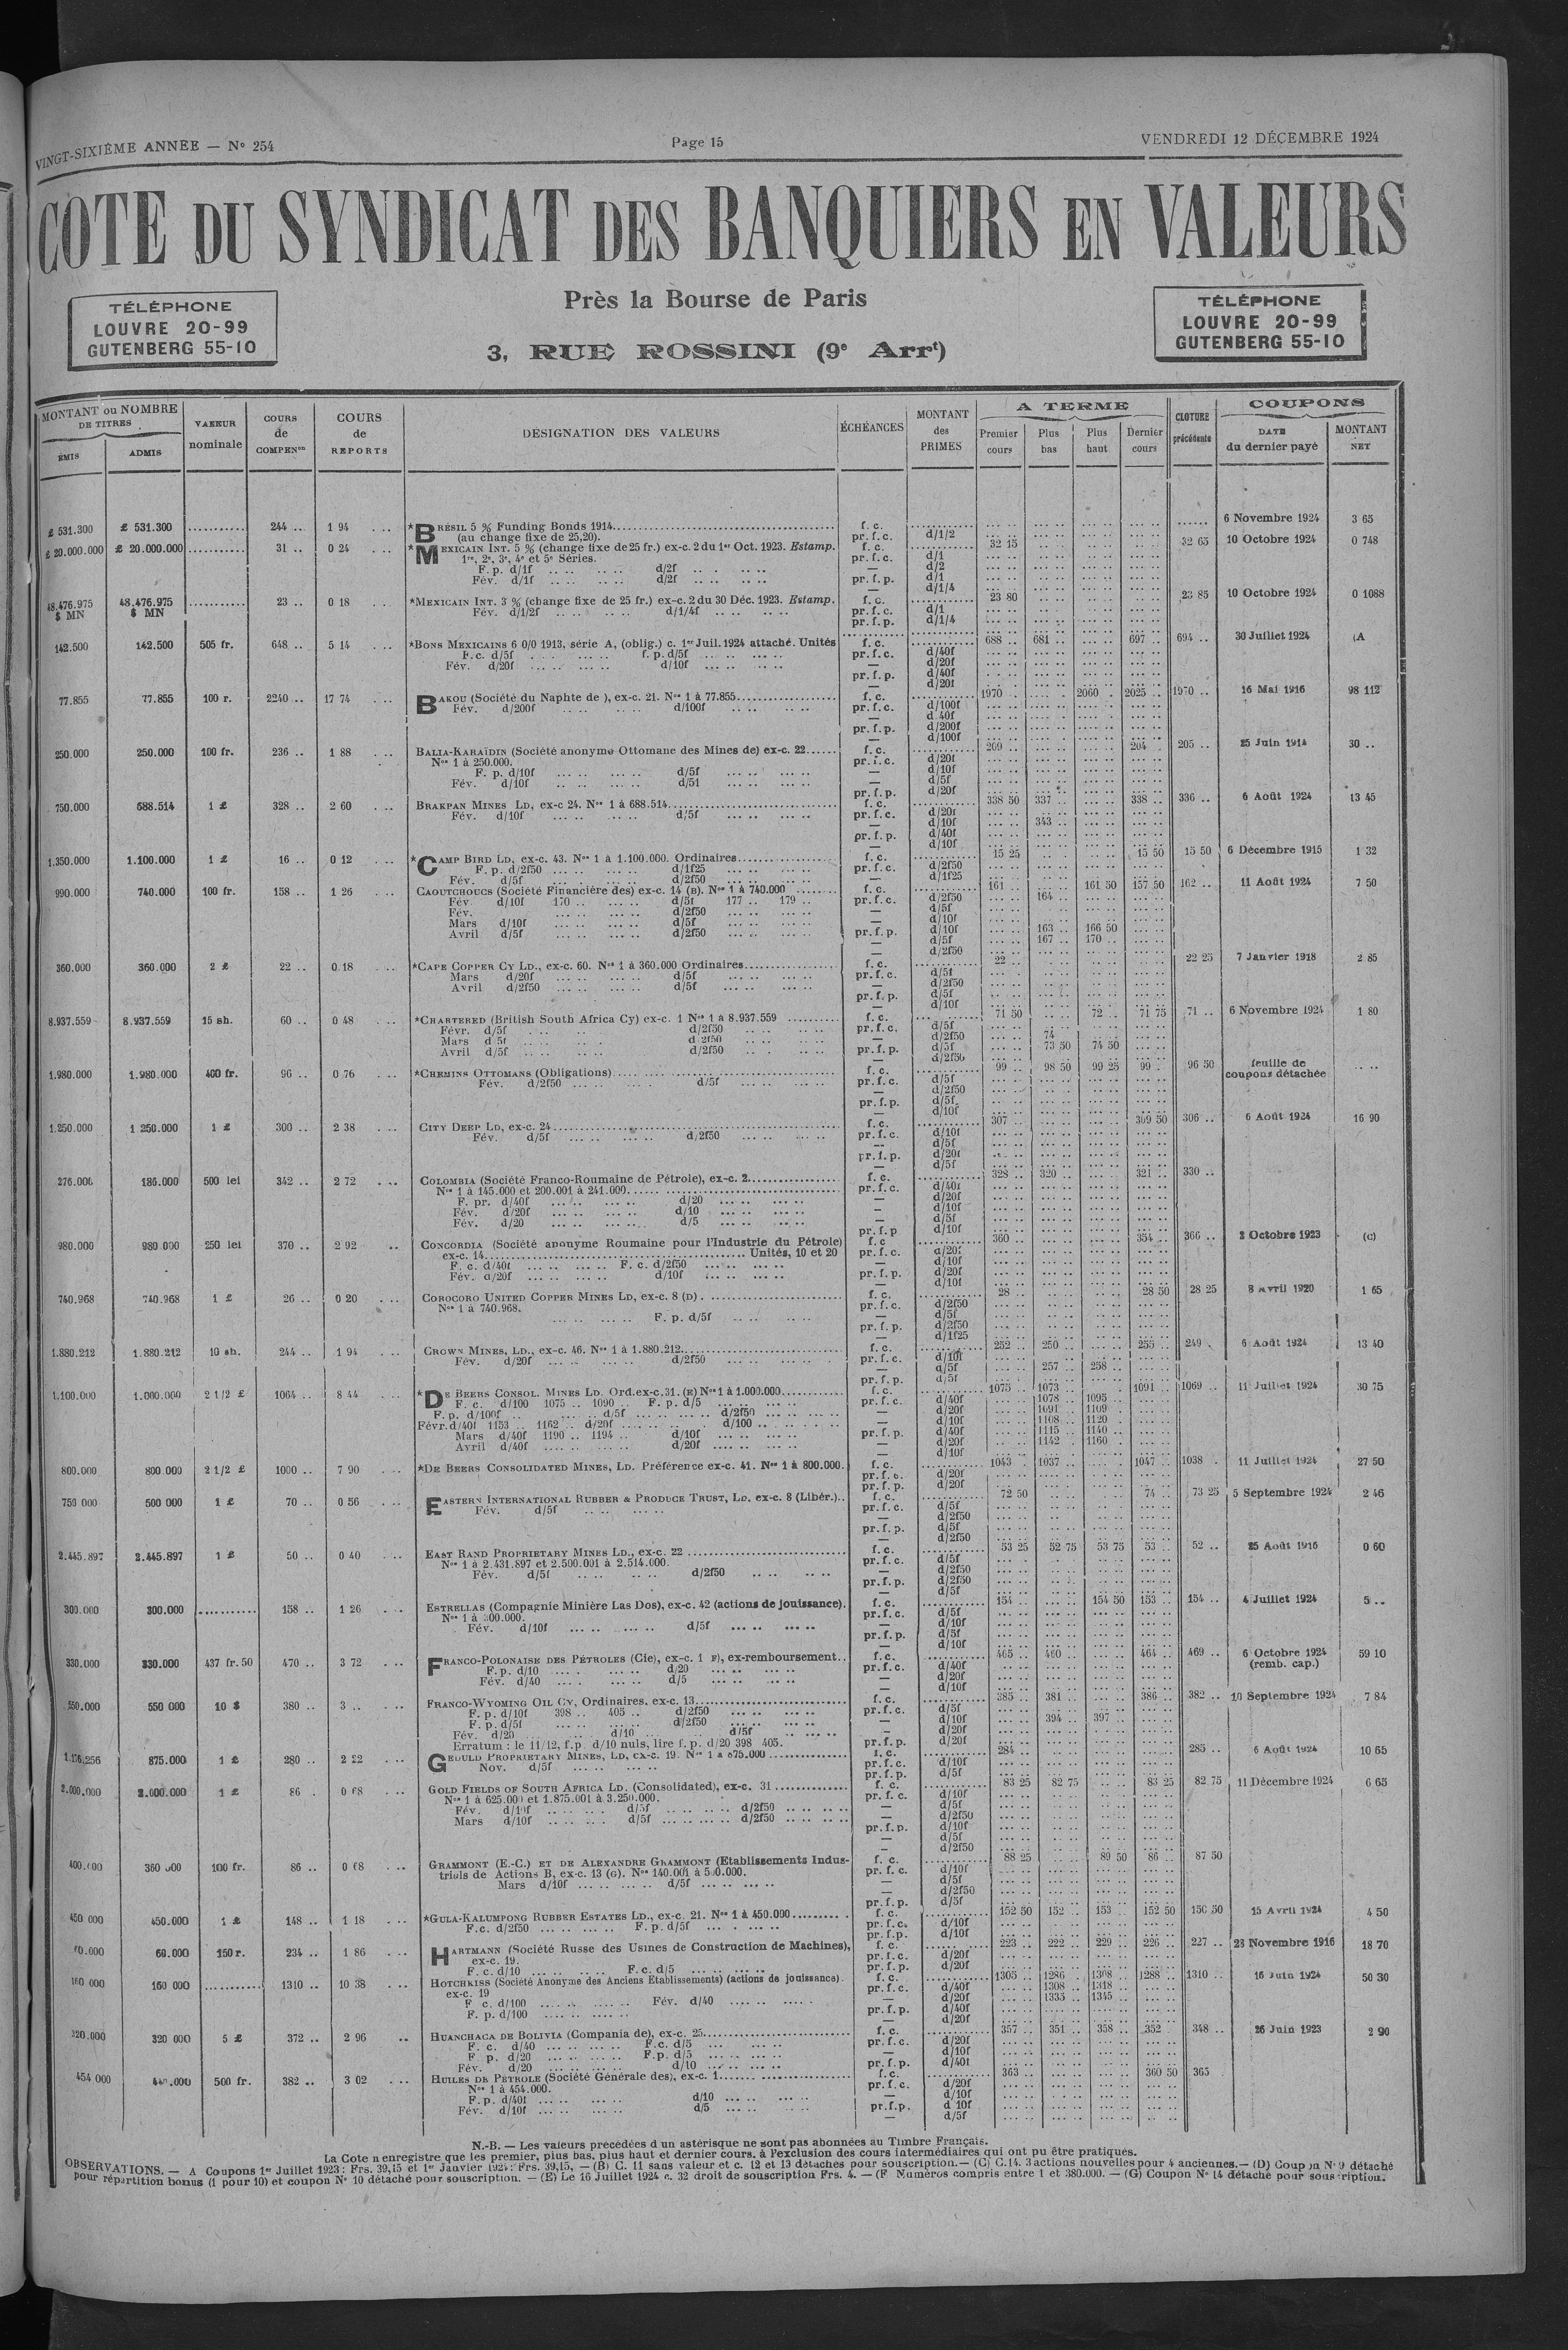 VINGT-SIXIÈME ANNÉE — Nº 254
Page 15
VENDREDI 12 DÉCEMBRE 1924
COTE DU SYNDICAT DES BANQUIERS EN VALEURS
Près la Bourse de Paris
3, RUE ROSSINI (9e Arrt)
TÉLÉPHONE
LOUVRE 20-99
GUTENBERG 55-10
TÉLÉPHONE
LOUVRE 20-99
GUTENBERG 55-10
MONTANT ou NOMBRE DE TITRES
ÉMIS
ADMIS
VALEUR nominale
COURS de COMPENon
COURS de REPORTS
DÉSIGNATION DES VALEURS
ÉCHÉANCES
MONTANT des PRIMES
A TERME
Premier cours
Plus bas
Plus haut
Dernier cours
CLOTURE précédente
COUPONS
DATE du dernier payé
MONTANT NET
£ 531.300 £ 531.300 244 .. 1 94 *BRÉSIL 5 % Funding Bonds 1914 f. c. 6 Novembre 1924 3 65
(au change fixe de 25,20). pr. f. c. d/1/2
£ 20.000.000 £ 20.000.000 31 .. 0 24 *MEXICAIN INT. 5 % (change fixe de 25 fr.) ex-c. 2 du 1er Oct. 1923. Estamp. f. c. 32 15 32 65 10 Octobre 1924 0 748
1re, 2e, 3e, 4e et 5e Séries. pr. f. c. d/1
F. p. d/1f d/2f — d/2
Fév. d/1f d/2f pr. f. p. d/1
— d/1/4
48.476.975 $ MN 48.476.975 $ MN 23 .. 0 18 *MEXICAIN INT. 3 % (change fixe de 25 fr.) ex-c. 2 du 30 Déc. 1923. Estamp. f. c. 23 80 23 85 10 Octobre 1924 0 1088
Fév. d/1/2f d/1/4f pr. f. c. d/1
pr. f. p. d/1/4
142.500 142.500 505 fr. 648 .. 5 14 *BONS MEXICAINS 6 0/0 1913, série A, (oblig.) c. 1er Juil. 1924 attaché. Unités f. c. 688 .. 681 .. 697 .. 694 .. 30 Juillet 1924 (A
F. c. d/5f f. p. d/5f pr. f. c. d/40f
Fév. d/20f d/10f — d/20f
pr. f. p. d/40f
— d/20f
77.855 77.855 100 r. 2240 .. 17 74 BAKOU (Société du Naphte de ), ex-c. 21. Nos 1 à 77.855 f. c. 1970 .. 2060 .. 2025 .. 1970 .. 16 Mai 1916 98 112
Fév. d/200f d/100f pr. f. c. d/100f
— d/40f
pr. f. p. d/200f
— d/100f
250.000 250.000 100 fr. 236 .. 1 88 BALIA-KARAÏDIN (Société anonyme Ottomane des Mines de) ex-c. 22 f. c. 209 .. 204 .. 205 .. 25 Juin 1914 30 ..
Nos 1 à 250.000. pr. f. c. d/20f
F. p. d/10f d/5f — d/10f
Fév. d/10f d/5f — d/5f
pr. f. p. d/20f
750.000 688.514 1 £ 328 .. 2 60 BRAKPAN MINES LD, ex-c 24. Nos 1 à 688.514 f. c. 338 50 337 .. 338 .. 336 .. 6 Août 1924 13 45
Fév. d/10f d/5f pr. f. c. d/20f
— d/10f 343 ..
pr. f. p. d/40f
— d/10f
1.350.000 1.100.000 1 £ 16 .. 0 12 *CAMP BIRD LD, ex-c. 43. Nos 1 à 1.100.000. Ordinaires f. c. 15 25 15 50 15 50 6 Décembre 1915 1 32
F. p. d/2f50 d/1f25 pr. f. c. d/2f50
Fév. d/5f d/2f50 — d/1f25
990.000 740.000 100 fr. 158 .. 1 26 CAOUTCHOUCS (Société Financière des) ex-c. 14 (B). Nos 1 à 740.000 f. c. 161 .. 161 50 157 50 162 .. 11 Août 1924 7 50
Fév d/10f 170 .. d/5f 177 .. 179 .. pr. f. c. d/2f50 164 ..
Fév. d/2f50 — d/5f
Mars d/10f d/5f — d/10f
Avril d/5f d/2f50 pr. f. p. d/10f 163 .. 166 50
— d/5f 167 .. 170 ..
— d/2f50
360.000 360.000 2 £ 22 .. 0 18 *CAPE COPPER CY LD., ex-c. 60. Nos 1 à 360.000 Ordinaires f. c. 22 .. 22 25 7 Janvier 1918 2 85
Mars d/20f d/5f pr. f. c. d/5f
Avril d/2f50 d/5f — d/2f50
pr. f. p. d/5f
— d/10f
8.937.559 8.937.559 15 sh. 60 .. 0 48 *CHARTERED (British South Africa Cy) ex-c. 1 Nos 1 à 8.937.559 f. c. 71 50 72 .. 71 75 71 .. 6 Novembre 1924 1 80
Févr. d/5f d/2f50 pr. f. c. d/5f
Mars d 5f d 2f50 — d/2f50 74
Avril d/5f d/2f50 pr. f. p. d/5f 73 50 74 50
— d/2f50
1.980.000 1.980.000 400 fr. 96 .. 0 76 *CHEMINS OTTOMANS (Obligations) f. c. 99 .. 98 50 99 25 99 .. 96 50 feuille de coupons détachée
Fév. d/2f50 d/5f pr. f. c. d/5f
— d/2f50
pr. f. p. d/5f
— d/10f
1.250.000 1 250.000 1 £ 300 .. 2 38 CITY DEEP LD, ex-c. 24 f. c. 307 309 50 306 .. 6 Août 1924 16 90
Fév. d/5f d/2f50 pr. f. c. d/10f
— d/5f
pr. f. p. d/20f
— d/5f
276.000 186.000 500 lei 342 .. 2 72 COLOMBIA (Société Franco-Roumaine de Pétrole), ex-c. 2 f. c. 328 .. 320 .. 321 .. 330 ..
Nos 1 à 145.000 et 200.001 à 241.000 pr. f. c. d/40f
F. pr. d/40f d/20 — d/20f
Fév. d/20f d/10 — d/10f
Fév. d/20 d/5 — d/5f
pr. f. p d/10f
980.000 980 000 250 lei 370 .. 2 92 CONCORDIA (Société anonyme Roumaine pour l'Industrie du Pétrole) f. c 360 .. 354 .. 366 .. 2 Octobre 1923 (c)
ex-c. 14 Unités, 10 et 20 pr. f. c. d/20f
F. c. d/40f F. c. d/2f50 — d/10f
Fév. d/20f d/10f pr. f. p. d/20f
— d/10f
740.968 740.968 1 £ 26 .. 0 20 COROCORO UNITED COPPER MINES LD, ex-c. 8 (D) f. c. 28 .. 28 50 28 25 8 Avril 1920 1 65
Nos 1 à 740.968. pr. f. c. d/2f50
F. p. d/5f — d/5f
pr. f. p. d/2f50
— d/1f25
1.880.212 1.880.212 10 sh. 244 .. 1 94 CROWN MINES, LD., ex-c. 46. Nos 1 à 1.880.212 f. c. 252 .. 250 .. 255 .. 249 . 6 Août 1924 13 40
Fév. d/20f d/2f50 pr. f. c. d/10f
— d/5f 257 .. 258 ..
pr. f. p. d/5f
1.100.000 1.000.000 2 1/2 £ 1064 .. 8 44 *DE BEERS CONSOL. MINES LD. Ord. ex-c. 31. (E) Nos 1 à 1.000.000 f. c. 1075 .. 1073 .. 1091 .. 1069 .. 11 Juillet 1924 30 75
F. c. d/100 1075 .. 1090 .. F. p. d/5 pr. f. c. d/40f 1078 1095
F. p. d/100f d/5f d/2f50 — d/20f 1091 1109
Févr. d/40f 1153 .. 1162 .. d/20f d/100 — d/10f 1108 1120
Mars d/40f 1190 .. 1194 .. d/10f pr. f. p. d/40f 1115 1140
Avril d/40f d/20f — d/20f 1142 1160
— d/10f
800.000 800.000 2 1/2 £ 1000 .. 7 90 *DE BEERS CONSOLIDATED MINES, LD. Préférence ex-c. 41. Nos 1 à 800.000. f. c. 1043 1037 1047 1038 11 Juillet 1924 27 50
pr. f. c. d/20f
pr. f. p. d/20f
750 000 500 000 1 £ 70 .. 0 56 EASTERN INTERNATIONAL RUBBER & PRODUCE TRUST, LD. ex-c. 8 (Libér.) f. c. 72 50 74 .. 73 25 5 Septembre 1924 2 46
Fév. d/5f pr. f. c. d/5f
— d/2f50
pr. f. p. d/5f
— d/2f50
2.445.897 2.445.897 1 £ 50 .. 0 40 EAST RAND PROPRIETARY MINES LD., ex-c. 22 f. c. 53 25 52 75 53 75 53 .. 52 .. 25 Août 1916 0 60
Nos 1 à 2.431.897 et 2.500.001 à 2.514.000. pr. f. c. d/5f
Fév. d/5f d/2f50 — d/2f50
pr. f. p. d/2f50
— d/5f
300.000 300.000 158 .. 1 26 ESTRELLAS (Compagnie Minière Las Dos), ex-c. 42 (actions de jouissance). f. c. 154 .. 154 50 153 .. 154 .. 4 Juillet 1924 5 ..
Nos 1 à 300.000. pr. f. c. d/5f
Fév. d/10f d/5f — d/10f
pr. f. p. d/5f
— d/10f
330.000 330.000 437 fr. 50 470 .. 3 72 FRANCO-POLONAISE DES PÉTROLES (Cie), ex-c. 1 F), ex-remboursement f. c. 465 .. 460 .. 464 .. 469 .. 6 Octobre 1924 59 10
F. p. d/10 d/20 pr. f. c. d/40f (remb. cap.)
Fév. d/40 d/5 — d/20f
— d/10f
550.000 550 000 10 $ 380 .. 3 .. FRANCO-WYOMING OIL CY, Ordinaires, ex-c. 13 f. c. 385 .. 381 .. 386 .. 382 .. 10 Septembre 1924 7 84
F. p. d/10f 398 .. 405 .. d/2f50 pr. f. c. d/5f
F. p. d/5f d/2f50 — d/10f 394 .. 397 ..
Fév. d/20 d/10 d/5f — d/20f
Erratum : le 11/12, f.p. d/10 nuls, lire f. p. d/20 398 405. pr. f. p. d/20f
1.156,256 875.000 1 £ 280 .. 2 22 GEDULD PROPRIETARY MINES, LD, ex-c. 19. Nos 1 à 875.000 f. c. 284 .. 285 .. 6 Août 1924 10 65
Nov. d/5f pr. f. c. d/10f
pr. f. p. d/5f
2.000.000 2.000.000 1 £ 86 . 0 68 GOLD FIELDS OF SOUTH AFRICA LD. (Consolidated), ex-c. 31 f. c. 83 25 82 75 83 25 82 75 11 Décembre 1924 6 65
Nos 1 à 625.000 et 1.875.001 à 3.250.000. pr. f. c. d/10f
Fév. d/10f d/5f d/2f50 — d/5f
Mars d/10f d/5f d/2f50 — d/2f50
pr. f. p. d/10f
— d/5f
— d/2f50
400.000 360 000 100 fr. 86 .. 0 68 GRAMMONT (E.-C.) ET DE ALEXANDRE GRAMMONT (Etablissements Indus- f. c. 88 25 89 50 86 .. 87 50
triels de Actions B, ex-c. 13 (G). Nos 140.001 à 500.000. pr. f. c. d/10f
Mars d/10f d/5f — d/5f
— d/2f50
pr. f. p. d/5f
450 000 450.000 1 £ 148 .. 1 18 *GULA-KALUMPONG RUBBER ESTATES LD., ex-c. 21. Nos 1 à 450.000 f. c. 152 50 152 .. 153 .. 152 50 150 50 15 Avril 1924 4 50
F.c. d/2f50 F. p. d/5f pr. f. c. d/10f
pr. f. p. d/10f
60.000 60.000 150 r. 234 .. 1 86 HARTMANN (Société Russe des Usines de Construction de Machines), f. c. 223 .. 222 .. 229 .. 226 .. 227 .. 23 Novembre 1916 18 70
ex-c. 19. pr. f. c. d/20f
F. c. d/10 F. c. d/5 pr. f. p. d/20f
160 000 160 000 1310 .. 10 38 HOTCHKISS (Société Anonyme des Anciens Etablissements) (actions de jouissance). f. c. 1305 .. 1286 .. 1308 .. 1288 .. 1310 .. 16 Juin 1924 50 30
ex-c. 19 pr. f. c. d/40f 1308 1318
F c. d/100 Fév. d/40 — d/20f 1335 1345
F. p. d/100 pr. f. p. d/40f
— d/20f
320.000 320 000 5 £ 372 .. 2 96 HUANCHACA DE BOLIVIA (Compania de), ex-c. 25 f. c. 357 351 .. 358 .. 352 348 .. 26 Juin 1923 2 90
F. c. d/40 F.c. d/5 pr. f. c. d/20f
F. p. d/20 F.p. d/5 — d/10f
Fév. d/20 d/10 pr. f. p. d/40f
454 000 500 fr. 382 .. 3 02 HUILES DE PÉTROLE (Société Générale des), ex-c. 1 f. c. 363 360 50 365
Nos 1 à 454.000. pr. f. c. d/20f
F. p. d/40f d/10 — d/10f
Fév. d/10f d/5 pr. f. p. d 10f
— d/5f
N.-B. — Les valeurs précédées d un astérisque ne sont pas abonnées au Timbre Français.
La Cote n enregistre que les premier, plus bas, plus haut et dernier cours, à l'exclusion des cours intermédiaires qui ont pu être pratiqués.
OBSERVATIONS. — A Coupons 1er Juillet 1923 : Frs. 39,15 et 1er Janvier 1924 : Frs. 39,15, — (B) C. 11 sans valeur et c. 12 et 13 détachés pour souscription. — (C) C.14. 3 actions nouvelles pour 4 anciennes. — (D) Coupon Nº 9 détaché
pour répartition bonus (1 pour 10) et coupon Nº 10 détaché pour souscription. — (E) Le 16 Juillet 1924 c. 32 droit de souscription Frs. 4. — (F Numéros compris entre 1 et 380.000. — (G) Coupon Nº 14 détaché pour souscription.